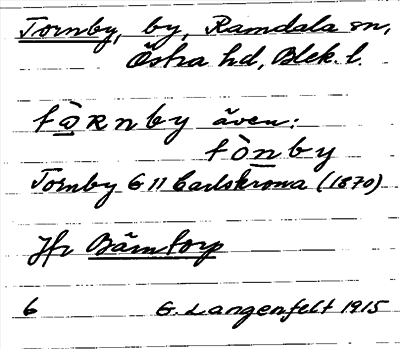 Tornby, by, Ramdala sn,
Östra hd, Blek. l.
även:
Tornby G 11 Carlskrona (1870)
Jfr Bämtorp
6 G. Langenfelt 1915